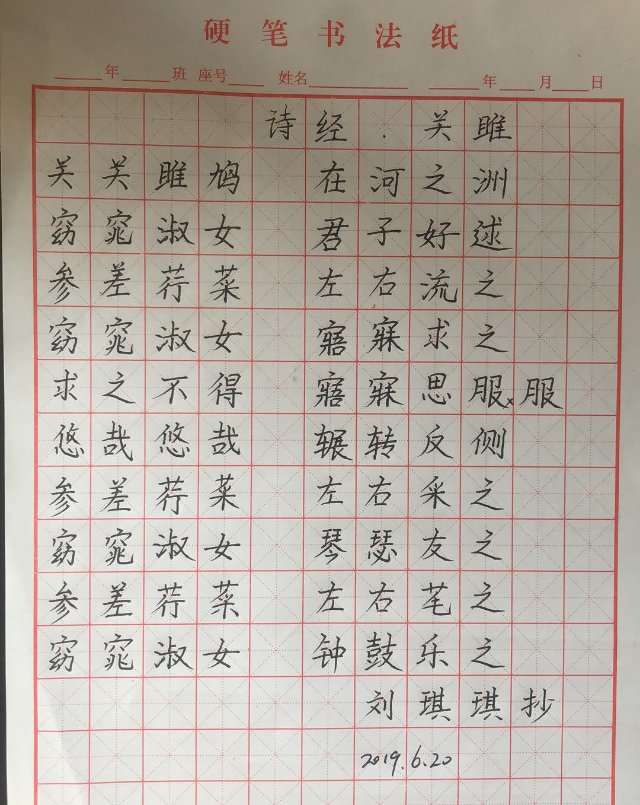 硬笔书法纸
年 班 座号 姓名 年 月 日
诗经·关雎
关关雎鸠 在河之洲
窈窕淑女 君子好逑
参差荇菜 左右流之
窈窕淑女 寤寐求之
求之不得 寤寐思服×服
悠哉悠哉 辗转反侧
参差荇菜 左右采之
窈窕淑女 琴瑟友之
参差荇菜 左右芼之
窈窕淑女 钟鼓乐之
刘琪琪抄
2019.6.20